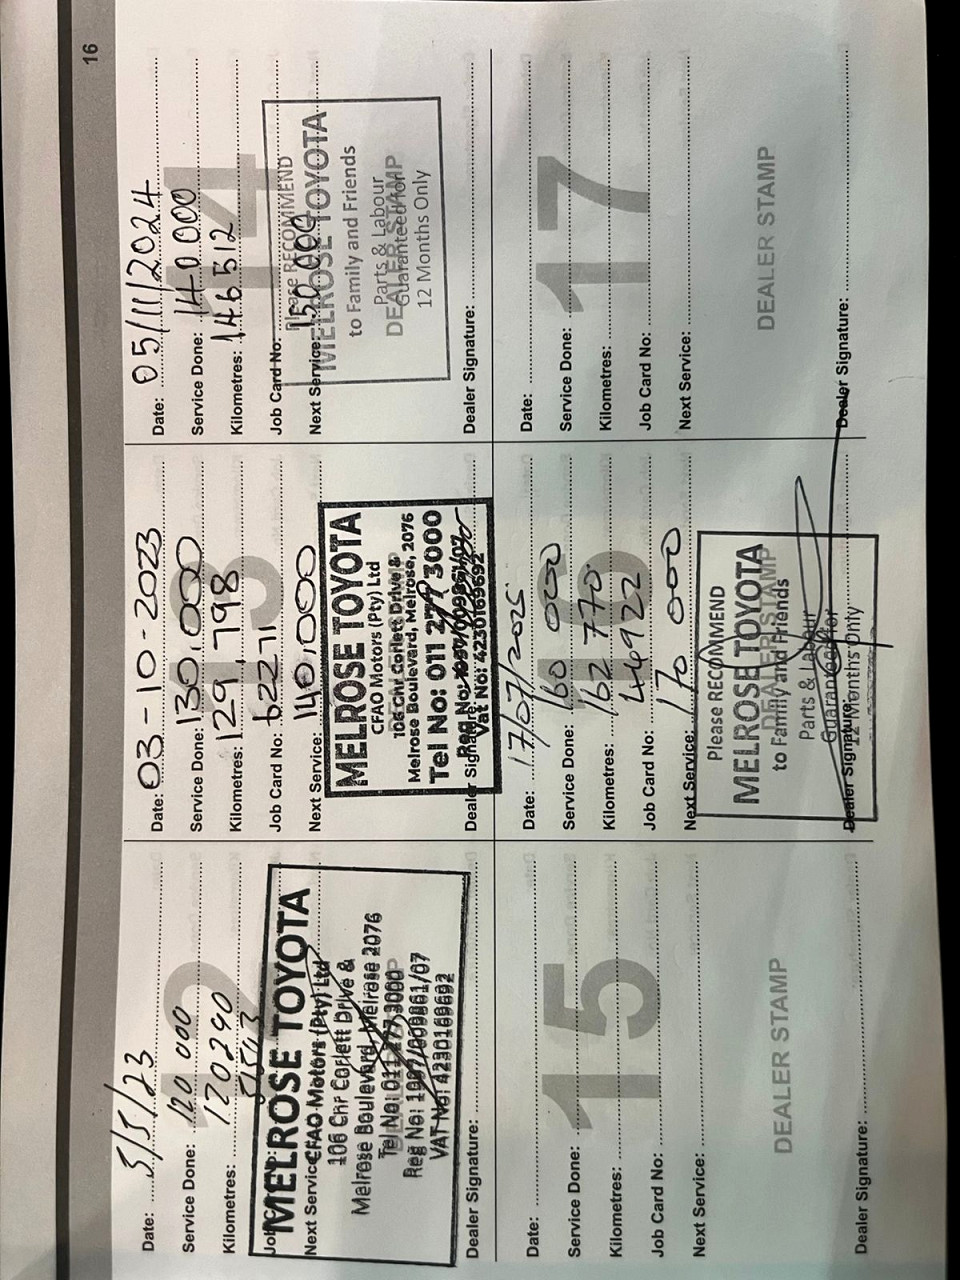 16
12
Date: 5/5/23
Service Done: 120 000
Kilometres: 120290
Job
Next Service:
MELROSE TOYOTA
CFAO Motors (Pty) Ltd
106 Chr Corlett Drive &
Melrose Boulevard, Melrose 2076
Tel No: 011 277 3000
Reg No: 1987/009861/07
VAT No: 4230169692
Dealer Signature:
13
Date: 03-10-2023
Service Done: 130,000
Kilometres: 129,798
Job Card No: 62271
Next Service: 140,000
MELROSE TOYOTA
CFAO Motors (Pty) Ltd
106 Chr Corlett Drive &
Melrose Boulevard, Melrose, 2076
Tel No: 011 277 3000
Vat No: 4230169692
Dealer Signature:
14
Date: 05/11/2024
Service Done: 140 000
Kilometres: 146512
Job Card No:
Next Service: 150.000
Please RECOMMEND
MELROSE TOYOTA
to Family and Friends
Parts & Labour
Guaranteed for
DEALER STAMP
12 Months Only
Dealer Signature:
15
Date:
Service Done:
Kilometres:
Job Card No:
Next Service:
DEALER STAMP
Dealer Signature:
16
Date: 17/07/2025
Service Done: 160 000
Kilometres: 162 770
Job Card No: 44922
Next Service: 170 000
Please RECOMMEND
MELROSE TOYOTA
DEALER STAMP
to Family and Friends
Parts & Labour
Guaranteed for
12 Months Only
Dealer Signature:
17
Date:
Service Done:
Kilometres:
Job Card No:
Next Service:
DEALER STAMP
Dealer Signature: